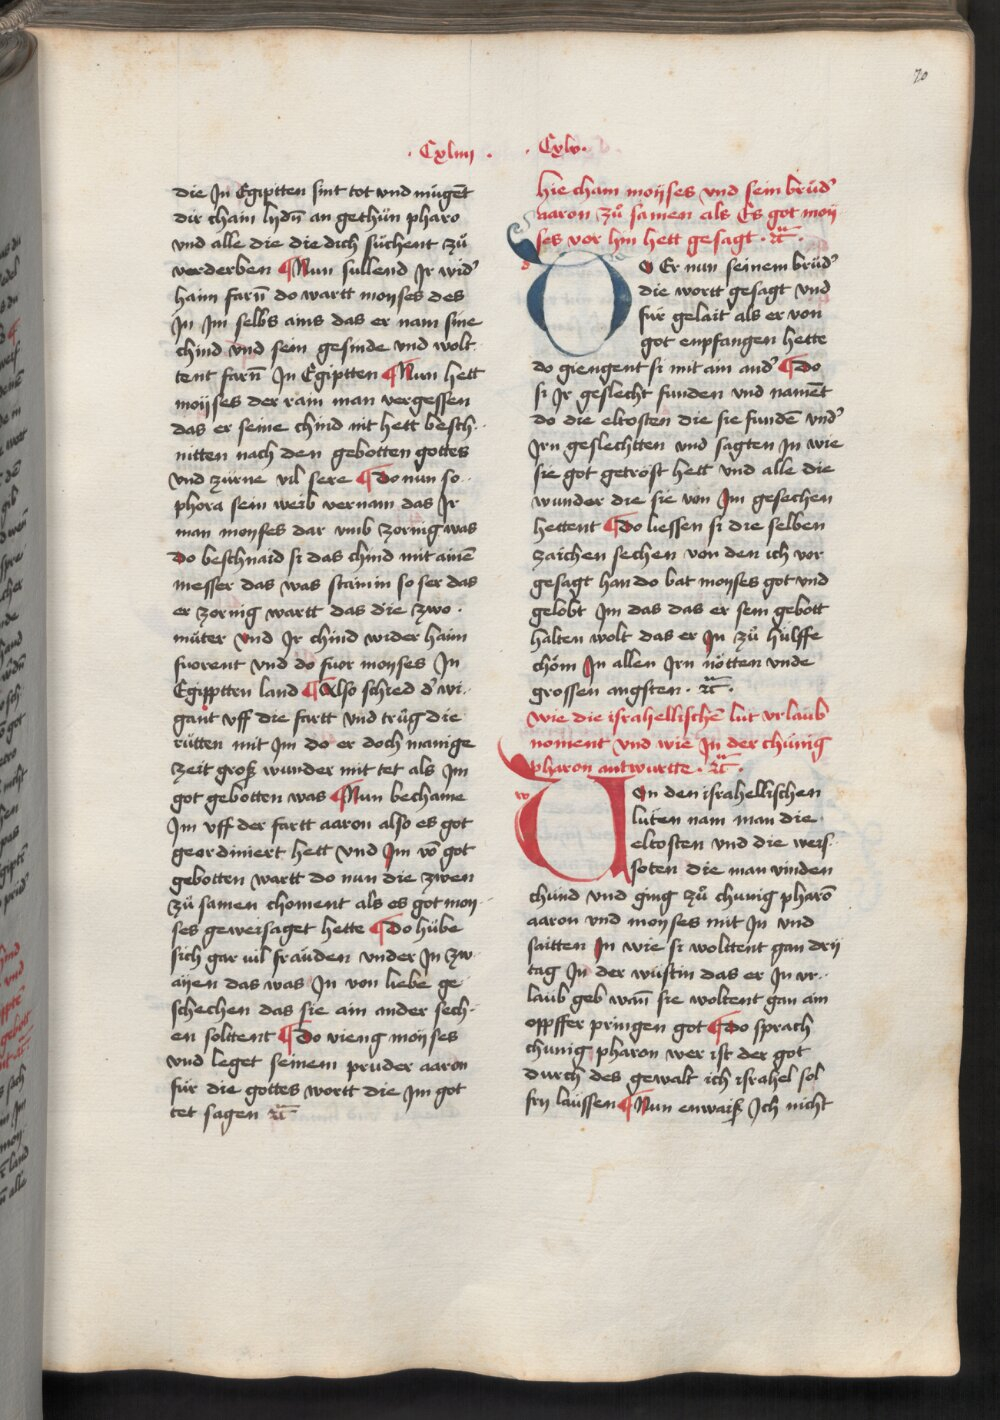 70
· Cxliiij ·
die Jn Egiptten sint tot vnd mugēt
dir chain lijdn̄ an gethün pharo
vnd alle die die dich süchent zů
verderben ¶ Nun sullend Jr wid'
haim farn̄ do wartt moyses des
Jn Jm selbs ains das er nam sine
chind vnd sein gesinde vnd wolt
tent farn̄ Jn Egiptten ¶ Nun hett
moyses der rain man vergessen
das er seine chind nit hett besch-
nitten nach den gebotten gottes
vnd zürne vil sere ¶ Do nun so-
phora sein weib vernam das Jr
man moyses dar vmb zornig was
Do beschnaid si das chind mit ainē
messer das was stainin so ser das
er zornig wartt das die zwo ·
müter vnd Jr chind wider haim
fuorent vnd do fuor moyses Jn
Egipptten land ¶ Also schied d' wi-
gant vff die fartt vnd trůg die
rütten mit Jm do er doch manige
zeit groß wunder mit tet als Jm
got gebotten was ¶ Nun bechame
Jm vff der fartt aaron also es got
geordiniert hett vnd Jm vō got
gebotten wartt do nun die zwen
zü samen choment als es got moy-
ses geweisaget hette ¶ Do hübe
sich gar vil fräuden vnder Jn zw-
aijen das was Jn von liebe ge
schechen das sie ain ander sech-
en solttent ¶ Do vieng moyses
vnd leget seinem pruder aaron
für die gottes wortt die Jm got
tet sagen ꝛc̄
· Cxlv ·
hie cham moyses vnd sein brüd'
aaron zů samen als Es got moy
ses vor hin hett gesagt · ꝛc̄ ·
DO Er nun seinem brüd'
die wortt gesagt vnd
für gelait als er von
got enpfangen hette
do giengent si mit ain and' ¶ Do
si Jr geslecht funden vnd namēt
do die eltosten die sie fundē vnd'
Jrn geslechtten vnd sagten Jn wie
sie got getröst hett vnd alle die
wunder die sie von Jm gesechen
hettent ¶ Do liessen si die selben
zaichen sechen von den ich vor
gesagt han do bat moyses got vnd
gelobt Jm das das er sein gebott
halten wolt das er Jn zů hülffe
chöm Jn allen Jrn nötten vnde
grossen angsten · ꝛc̄ ·
wie die israhellischē lüt vrlaub
noment vnd wie Jn der chünig
pharon antwurtte · ꝛc̄ ·
VOn den israhellischen
lüten nam man die
eltosten vnd die weis-
soten die man vinden
chund vnd ging zů chunig pharō
aaron vnd moyses mit Jn vnd
saitten Jn wie si wolttent gan drij
tag Jn der wüstin das er Jn vr-
laub geb wan̄ sie woltent gan ain
oppffer pringen got ¶ Do sprach
chunig pharon wer ist der got
durch des gewalt ich israhel sol
frij laussen ¶ Nun enwaiß Jch nicht